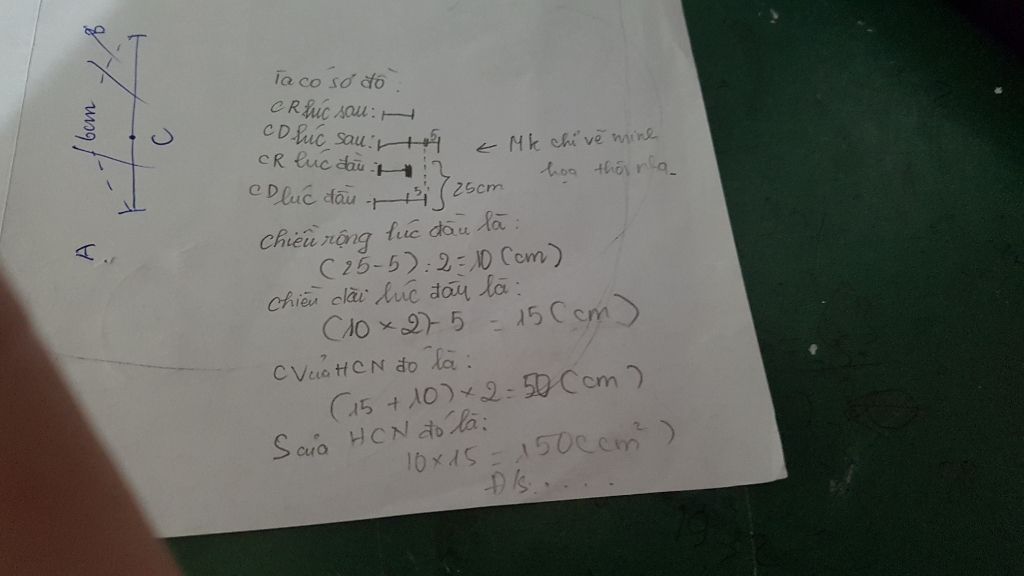 Ta có sơ đồ:
CR lúc sau:
CD lúc sau: 5
← Mk chỉ vẽ minh
hoạ thôi nha
CR lúc đầu:
CD lúc đầu 5
25cm
Chiều rộng lúc đầu là:
(25-5):2=10(cm)
chiều dài lúc đầu là:
(10×2)-5 = 15(cm)
CV của HCN đó là:
(15+10)×2=50(cm)
S của HCN đó là:
10×15=150(cm²)
Đ/s:.....
A
6cm
B
C